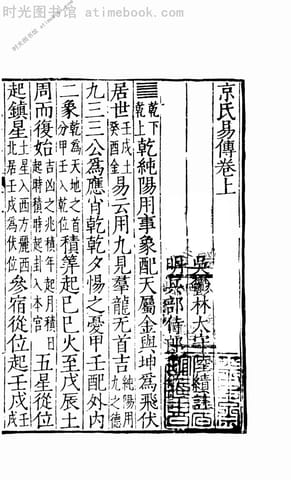 时光图书馆 atimebook.com
京氏易傳卷上
吳 林太 績註
明兵部侍郎
乾下乾上乾純陽用事象配天屬金與坤為飛伏
居世壬戌土癸酉金易云用九見羣龍无首吉純陽用九之德
九三三公為應肖乾乾夕惕之憂甲壬配外内
二象乾為天地之首分甲壬入乾位積筭起己巳火至戊辰土
周而復始吉凶之兆積年起月積日起時積時起卦入本宫五星從位
起鎮星土星入西方 西北居壬戌為伏位參宿從位起壬戌壬戌